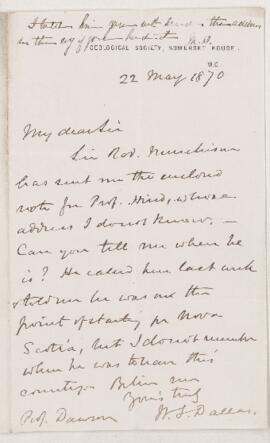 I told him you wd send
GEOLOGICAL SOCIETY, SOMERSET HOUSE,
W.C.
22 May 1870
My dear Sir
Sir Rod. Murchison
has sent me the enclosed
note for Prof. Hind, whose
address I do not know. —
Can you tell me where he
is? He called here last week
& told me he was on the
point of starting for Nova
Scotia, but I do not remember
when he was to leave this
country. Believe me
Yours truly
W. S. Dallas.
Prof. Dawson